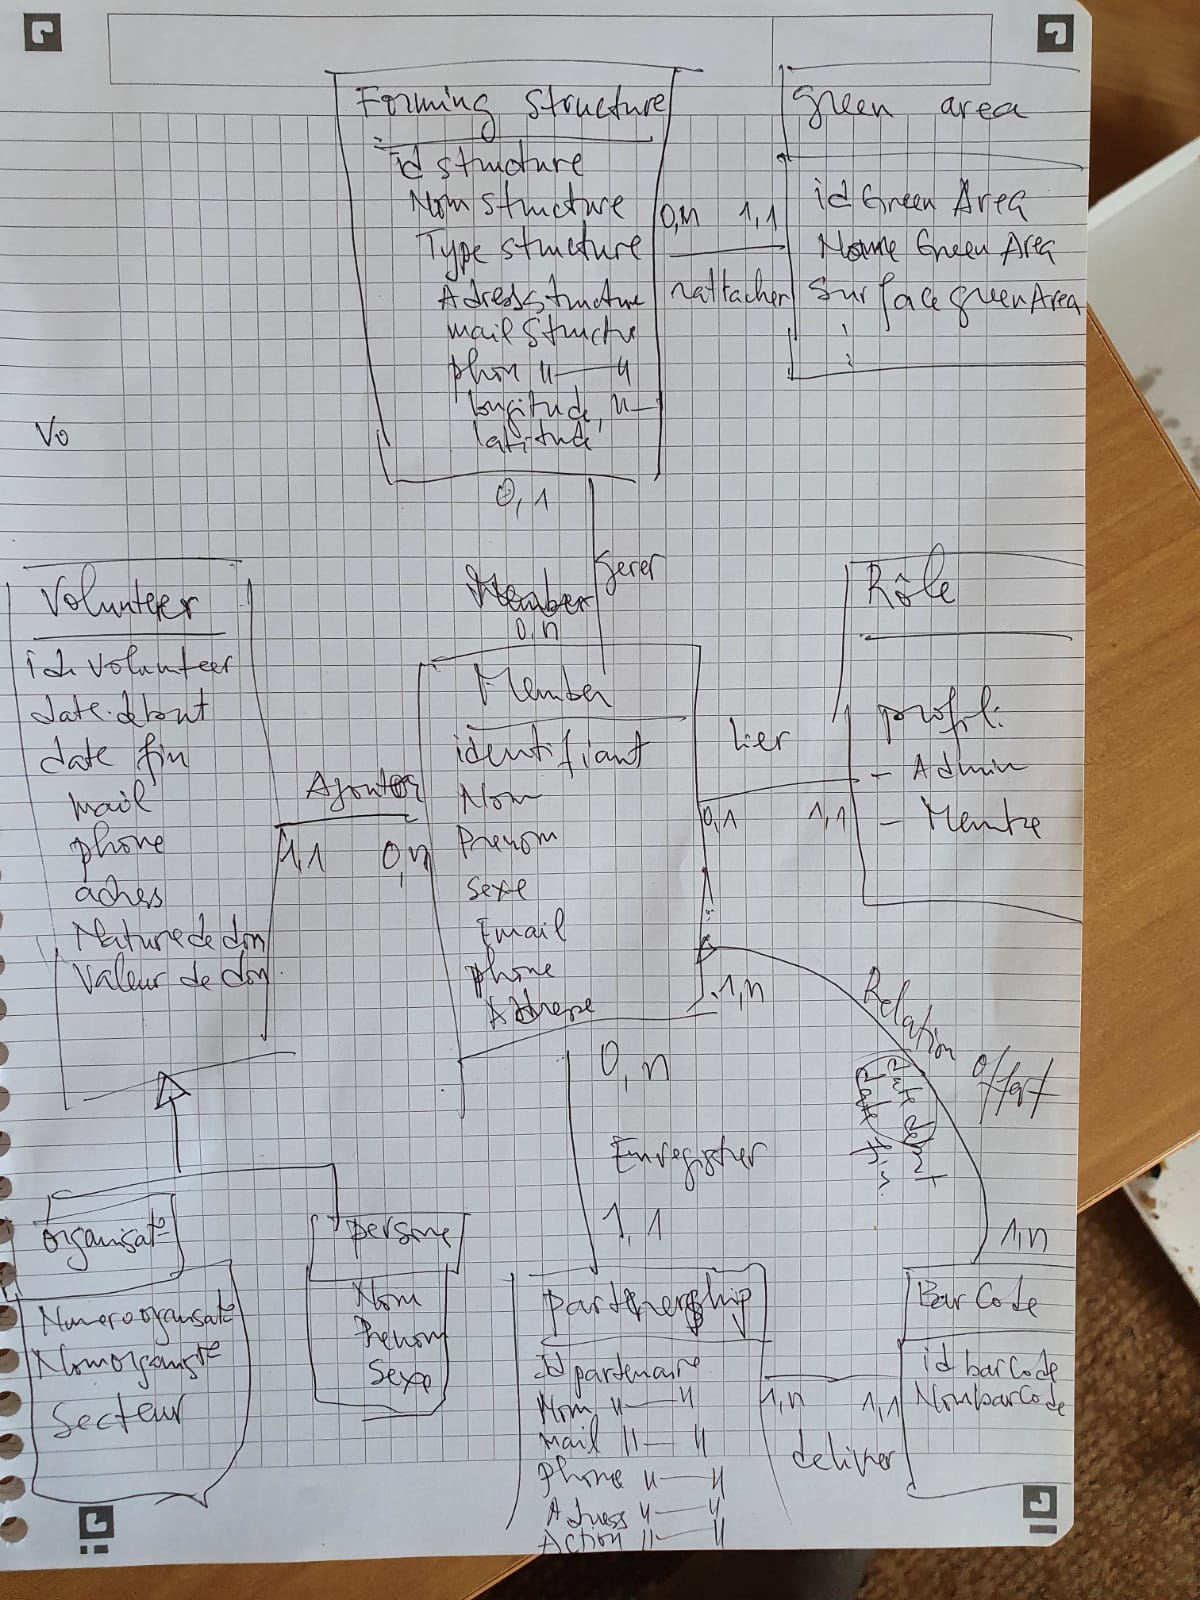 Forming Structure
id structure
Nom structure
Type structure
Adress structure
mail structu
phon "—"
longitude, "—
latitude
green area
id Green Area
Name Green Area
Surface green Area
0,n 1,1
rattacher
Vo
0,1
gerer
Member
0,n
Volunteer
id volunteer
date debut
date fin
mail
phone
adress
Nature de don
Valeur de don
Ajouter
1,1 0,n
Member
identifiant
Nom
Prenom
Sexe
Email
phone
Adresse
lier
0,1 1,1
Rôle
profil:
- Admin
- Membre
1,n
Relation
date debut
date fin
1,n
0,n
Enregistrer
1,1
organisat
Numero organisat
Nom organiste
Secteur
persone
Nom
Prenom
Sexe
partnership
Id partenaire
Nom "—"
mail "—"
phone "—"
Adress "—"
Action "—"
1,n 1,1
deliver
Bar Code
id bar Code
Nom bar Code